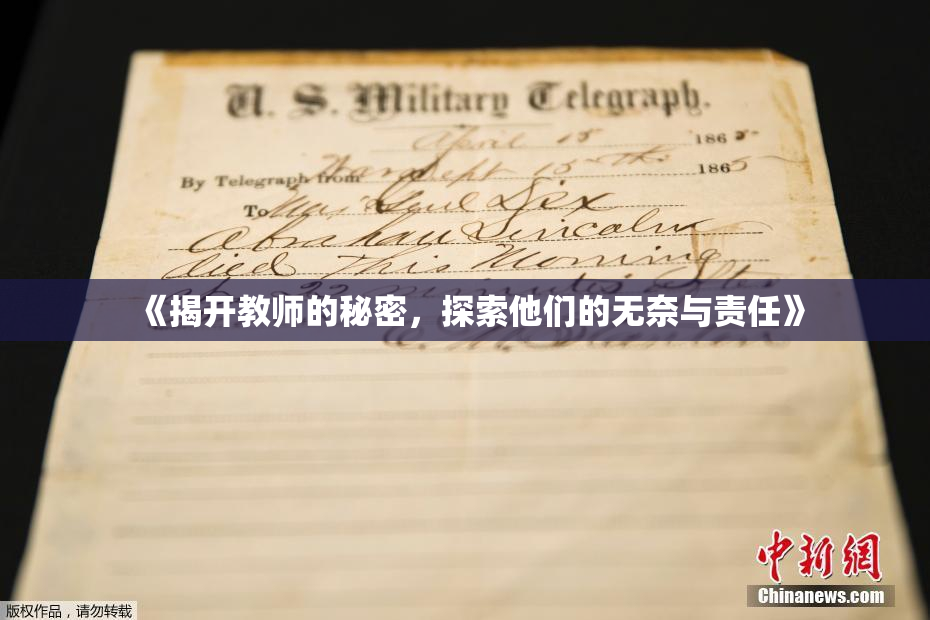 U. S. Military Telegraph.
April 15 1865
By Telegraph from War Dept 15th 1865
To Maj Genl Dix
Abraham Lincoln
died This Morning
at 22 minutes after
《揭开教师的秘密，探索他们的无奈与责任》
E. M. Stanton
中新網
Chinanews.com
版权作品，请勿转载